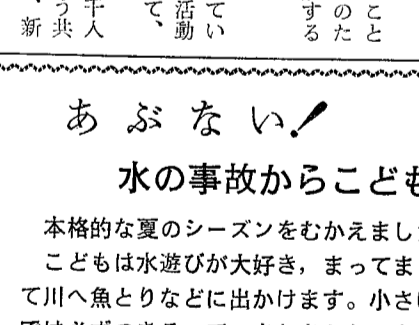 こと
のた
する
てい
活動
て、
千人
う共
新
あぶない!
水の事故からこども
本格的な夏のシーズンをむかえまし
こどもは水遊びが大好き，まってま
て川へ魚とりなどに出かけます。小さ